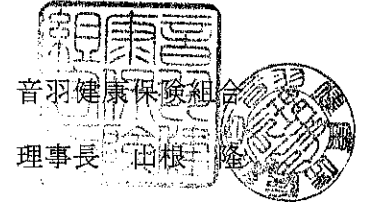 音羽健康保険組合
理事長 山根 隆